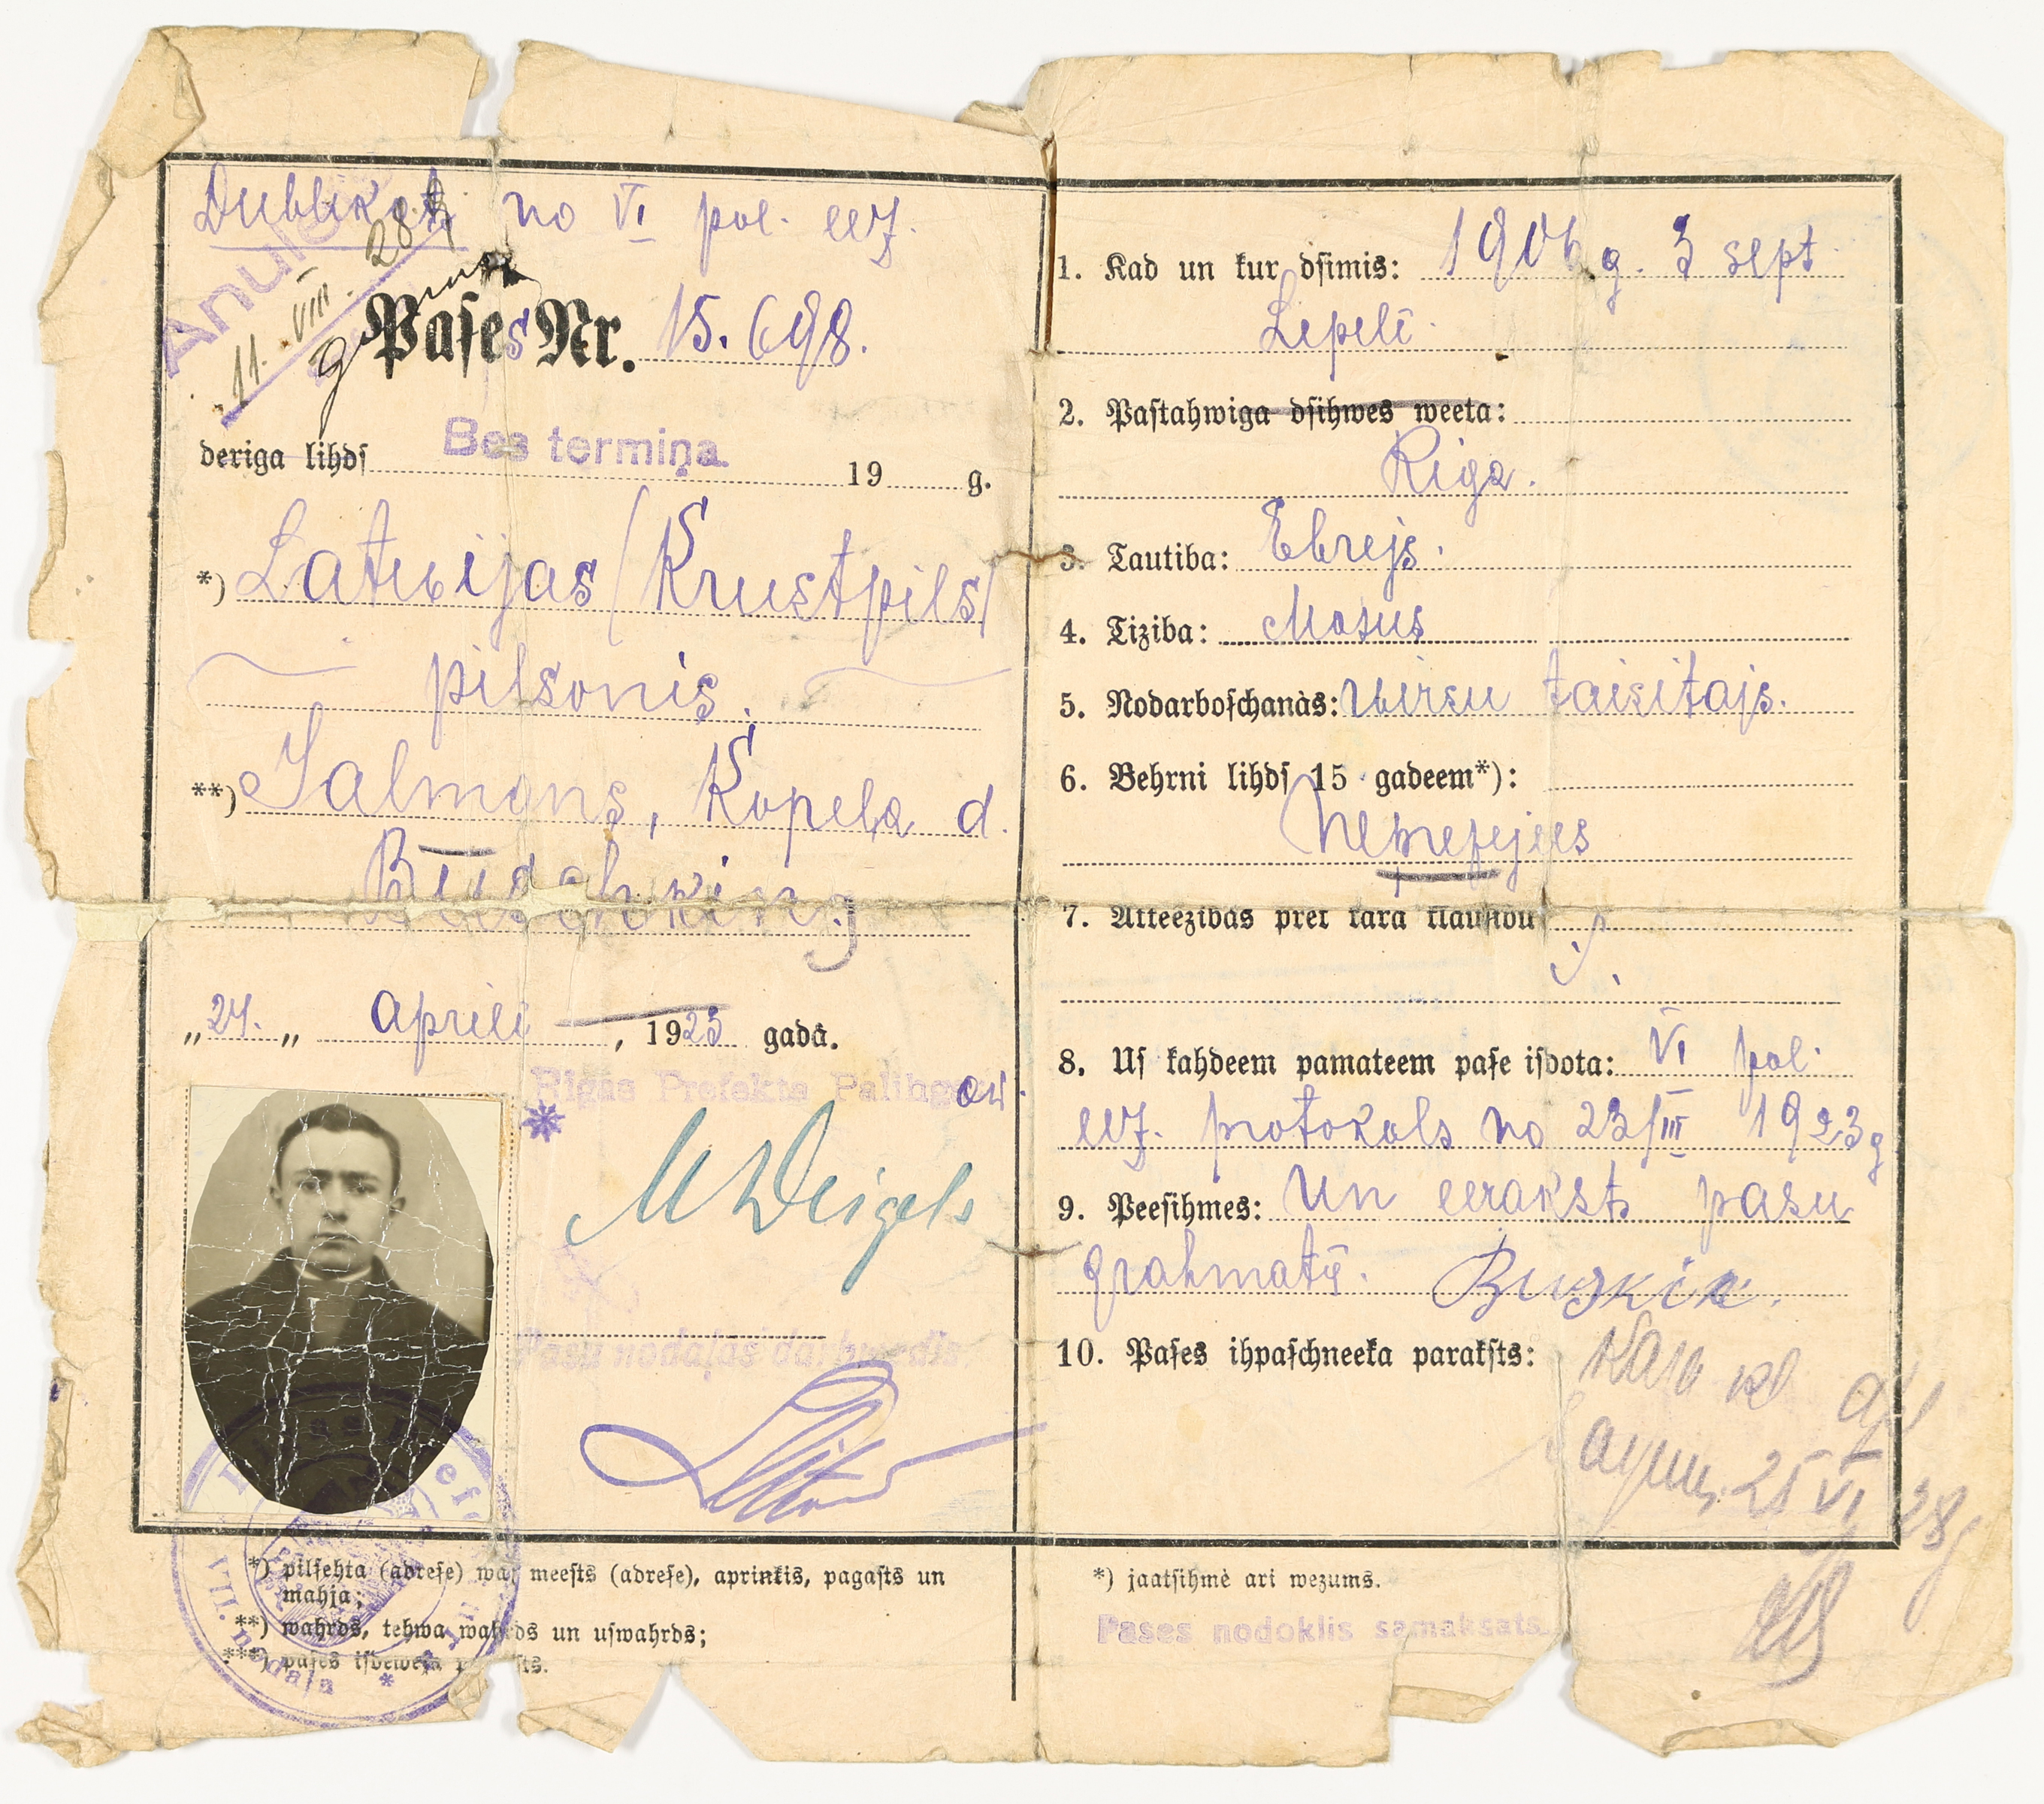 Dublikat no VI pol. eez.
Anulets
11. VIII. 28. g.
Pases Nr. 15.698.
deriga lihds Bes termiņa. 19 g.
*) Latwijas (Krustpils)
pilsonis.
**) Salmans, Kopeļa d.
„24.„ aprili, 1923 gadā.
Rigas Prefekta Palihgs
Pasu nodaļas darbwedis
*) pilsehta (adrese) wai meests (adrese), aprinkis, pagasts un
mahja;
**) wahrds, tehwa wahrds un uswahrds;
***) pases isdeweja
VII. nodaļa
1. Kad un kur dsimis: 1906 g. 3 sept
Lepelē.
2. Pastahwiga dsihwes weeta:
Riga.
3. Tautiba: Ebrejs.
4. Tiziba: Mosus
5. Nodarboschanàs: wirsu taisitajs.
6. Behrni lihds 15 gadeem*):
Neprezejees
7. Atteezibas pret kara klausibu
8. Us kahdeem pamateem pase isdota: VI pol.
eez. protokols no 23/III 1923 g
9. Peesihmes: un eeraksts pasu
grahmatā.
10. Pases ihpaschneeka paraksts:
25 VI 28g
*) jaatsihmè ari wezums.
Pases nodoklis samaksats